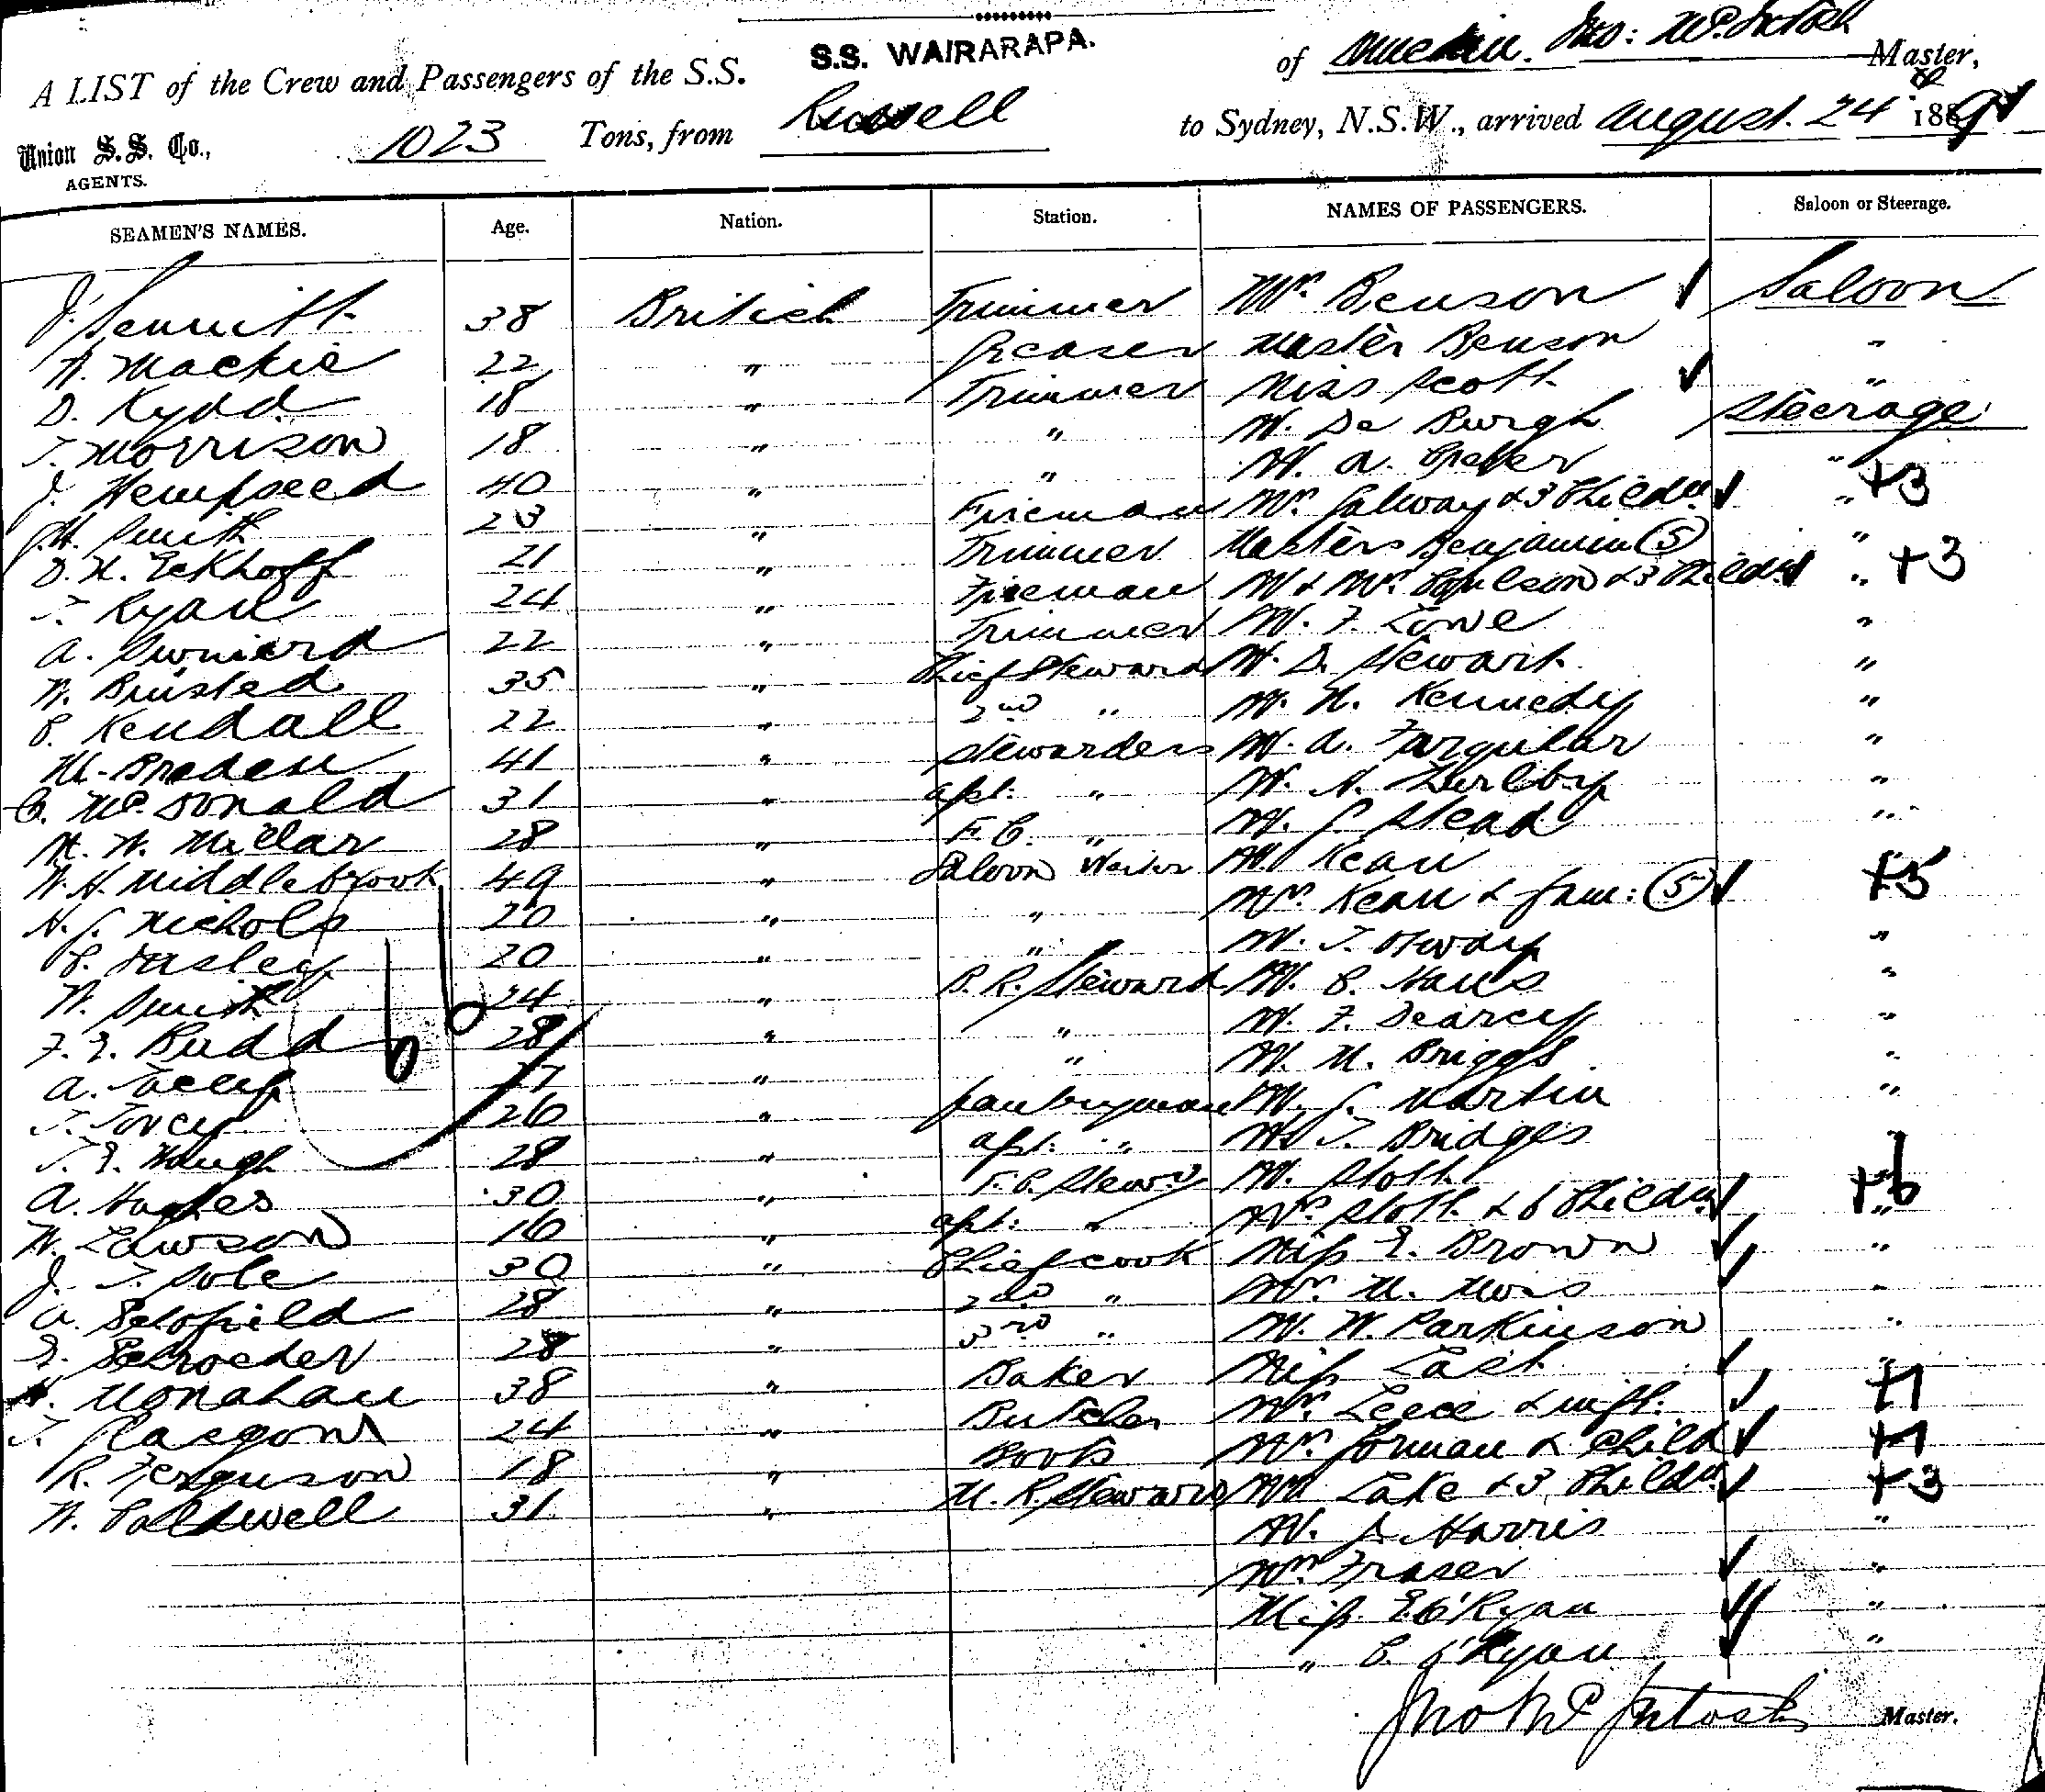 S.S. WAIRARAPA.
A LIST of the Crew and Passengers of the S.S. of Dunedin. Jno: McIntosh Master,
Union S. S. Co., AGENTS. 1023 Tons, from Russell to Sydney, N.S.W., arrived August 24 1889
SEAMEN'S NAMES. Age. Nation. Station. NAMES OF PASSENGERS. Saloon or Steerage.
J. Sennitt 38 British Trimmer Mrs. Benson Saloon
A. Mackie 22 " Greaser Master Benson "
D. Kydd 18 " Trimmer Miss Scott "
T. Morrison 18 " " M. De Burgh Steerage
J. Hempseed 40 " " M. A. "
J.H. Smith 23 " Fireman Mrs. Galway & 3 Childn " +3
D. H. Eckhoff 21 " Trimmer Masters Benjamin (5) "
T. Ryan 24 " Fireman M & Mrs. Coulson & 3 Childn " +3
A. 22 " Trimmer M. F. Lowe "
W. Bristed 35 " Chief Steward M. D. Stewart "
C. Kendall 22 " 2nd " M. N. Kennedy "
M. Braden 41 " Stewardess M. A. Farquhar "
C. McDonald 31 " asst. " M. A. "
M. W. Millar 28 " F.C. " M. J. Stead "
W.H. Middlebrook 49 " Saloon Waiter M Kean "
H. J. Nichols 20 " " Mrs. Kean & fam: (5) +5
C. Tasley 20 " " M. T. Otway "
W. Smith 24 " B.R. Steward M. C. Haus "
F. E. Budd 28 " " M. F. Dearcy "
A. 17 " " M. M. Briggs "
T. Tovey 26 " Pantryman M. J. Martin "
T. E. Waugh 28 " asst. " M. T. Bridges "
A. Hughes 30 " F.C. Stewd M. Stott "
W. Lawson 16 " asst. " Mrs. Stott & 6 Childn " +6
J. T. Sole 30 " Chief cook Miss E. Brown "
A. Schofield 28 " 2nd " Mrs. M. "
E. Schroeder 28 " 3rd " M. W. Parkinson "
H. Monahan 38 " Baker Miss Last "
T. Glasgow 24 " Butcher Mrs. Leece & inft. +1
R. Ferguson 18 " Boots Mrs. Gorman & Child +1
W. Caldwell 31 " M. R. Steward Mrs Lake & 3 Childn +3
M. J. Harris "
Mrs. Fraser "
Miss E. O'Ryan "
" C. O'Ryan "
Jno McIntosh Master.